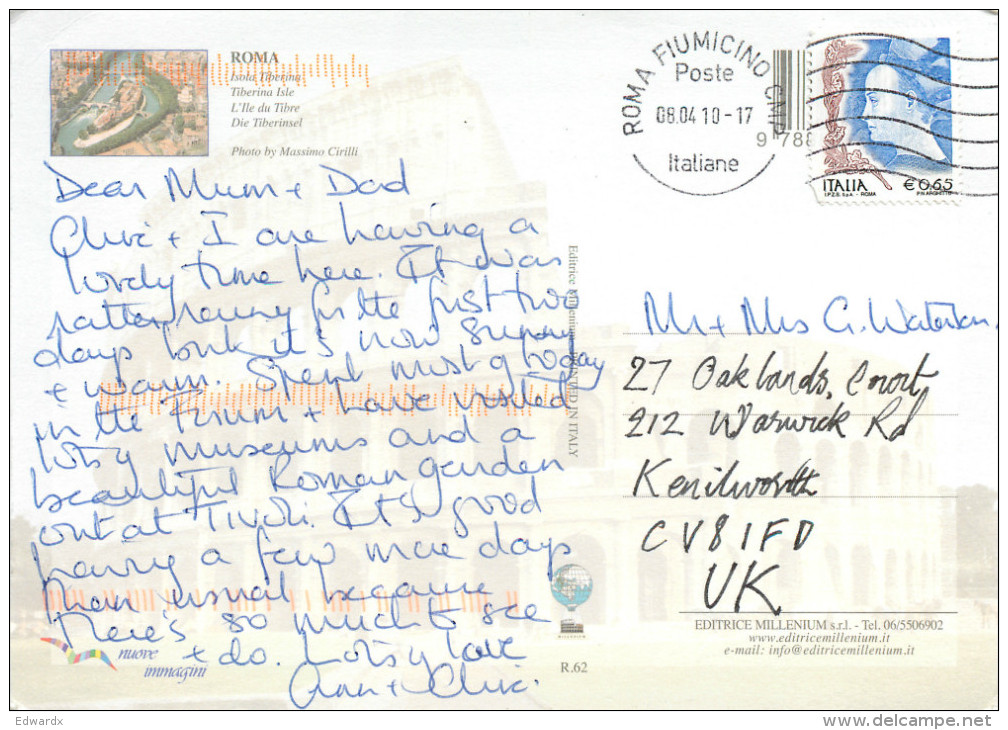 ROMA
Isola Tiberina
Tiberina Isle
L'Ile du Tibre
Die Tiberinsel
Photo by Massimo Cirilli
ROMA FIUMICINO CMP
Poste
08.04 10-17
Italiane
9 788
ITALIA € 0,65
I.P.Z.S. S.p.A. - ROMA
Dear Mum + Dad
Clive + I are having a
lovely time here. It was
rather rainy for the first two
days but it's now sunny
+ warm. Spent most of today
in the Forum + have visited
lots of museums and a
beautiful Roman garden
out at Tivoli. It's good
having a few more days
than usual because
there's so much to see
+ do. Lots of love
Ann + Clive.
Editrice Millenium PRINTED IN ITALY
Mr + Mrs G. Waterson
27 Oaklands, Court,
212 Warwick Rd
Kenilworth
CV8 1FD
UK
EDITRICE MILLENIUM s.r.l. - Tel. 06/5506902
www.editricemillenium.it
e-mail: info@editricemillenium.it
nuove
immagini
MILLENIUM
R.62
Edwardx
delcampe.net